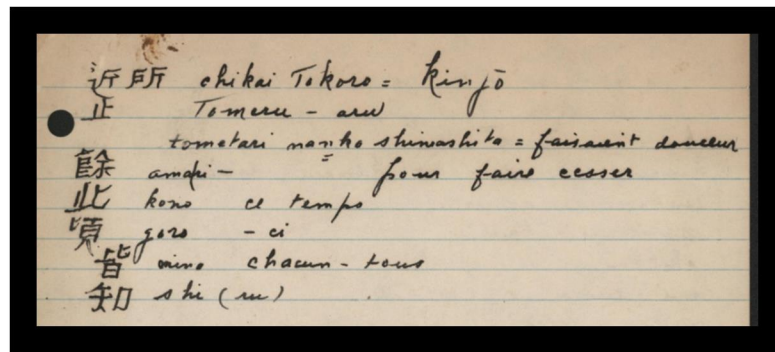 近所 chikai Tokoro = kinjō
止 Tomeru - aru
tometari nanko shimashita = faisaient douceur
餘 amari - pour faire cesser
此 kono ce temps
頃 goro - ci
皆 mina chacun - tous
知 shi (ru)